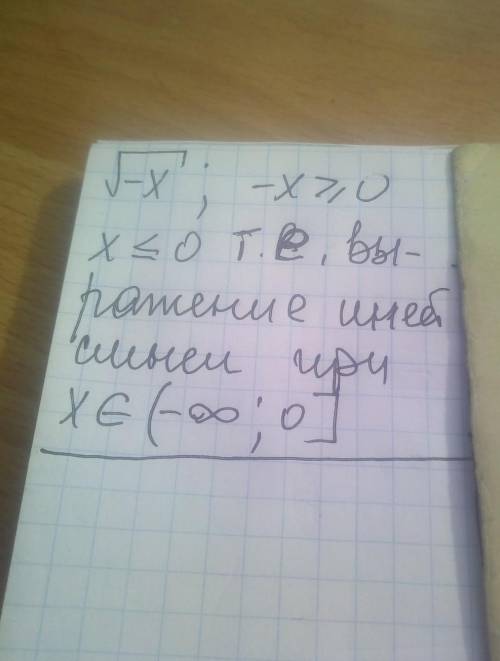 √-x ; -x ⩾ 0
x ≤ 0 т.е. вы-
ражение имеет
смысл при
x ∈ (-∞; 0]